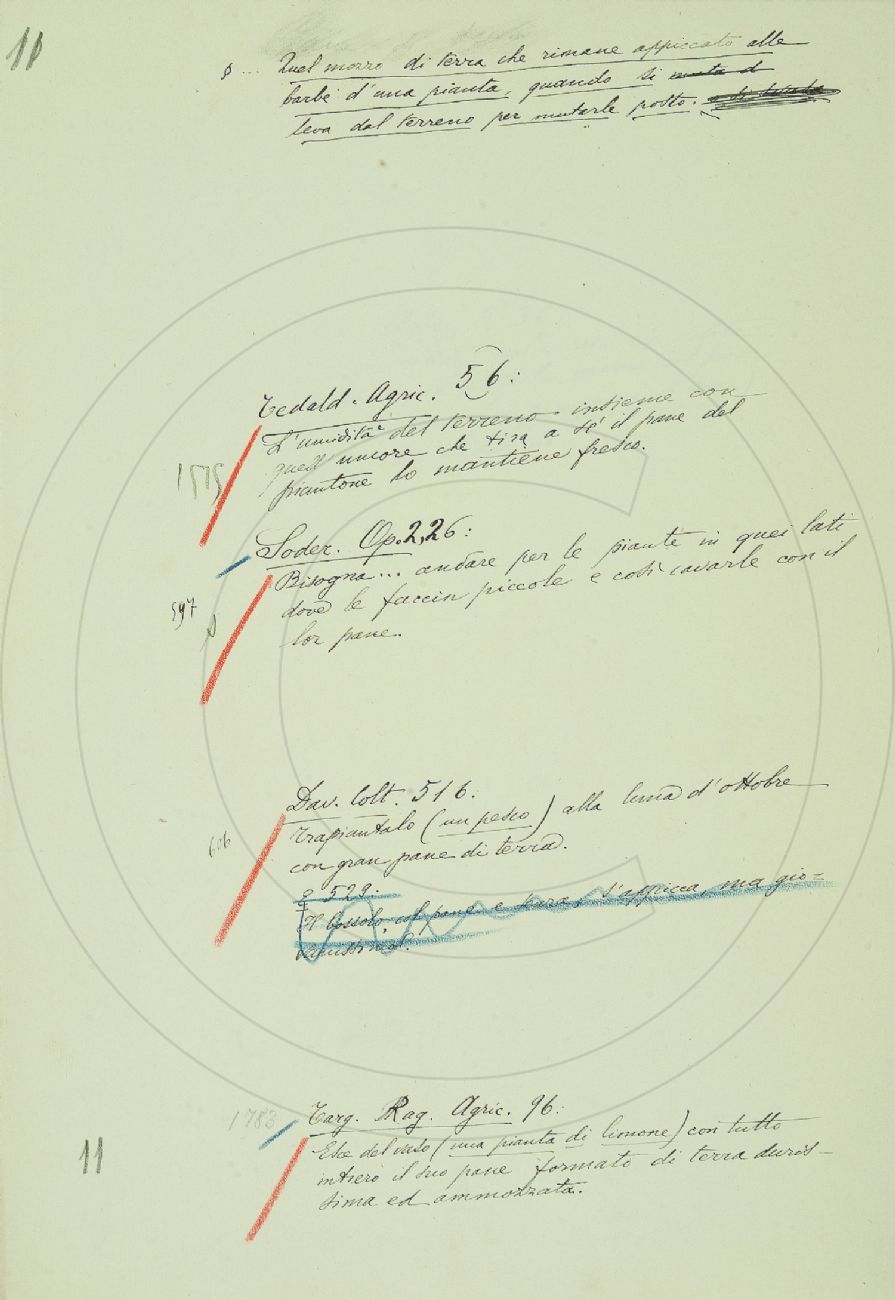 11
§ ... Quel mozzo di terra che rimane appiccato alle
barbe d'una pianta, quando si muta d
leva dal terreno per mutarle posto.
Tedald. Agric. 56:
L'umidità del terreno insieme con
quell'umore che tira a sé il pane del
1575
piantone lo mantiene fresco.
Soder. Op. 2, 26:
Bisogna... andare per le piante in quei lati
597
dove le faccin piccole e così cavarle con il
lor pane.
Dav. Colt. 516:
Trapiantalo (un pesco) alla luna d'ottobre
606
con gran pane di terra.
E 529:
Il bossolo, col pane e senza, s'appicca, ma gio=
vanissimo.
1783
Targ. Rag. Agric. 96:
Esce del vaso (una pianta di limone) con tutto
11
intiero il suo pane formato di terra duris-
sima ed ammozzata.